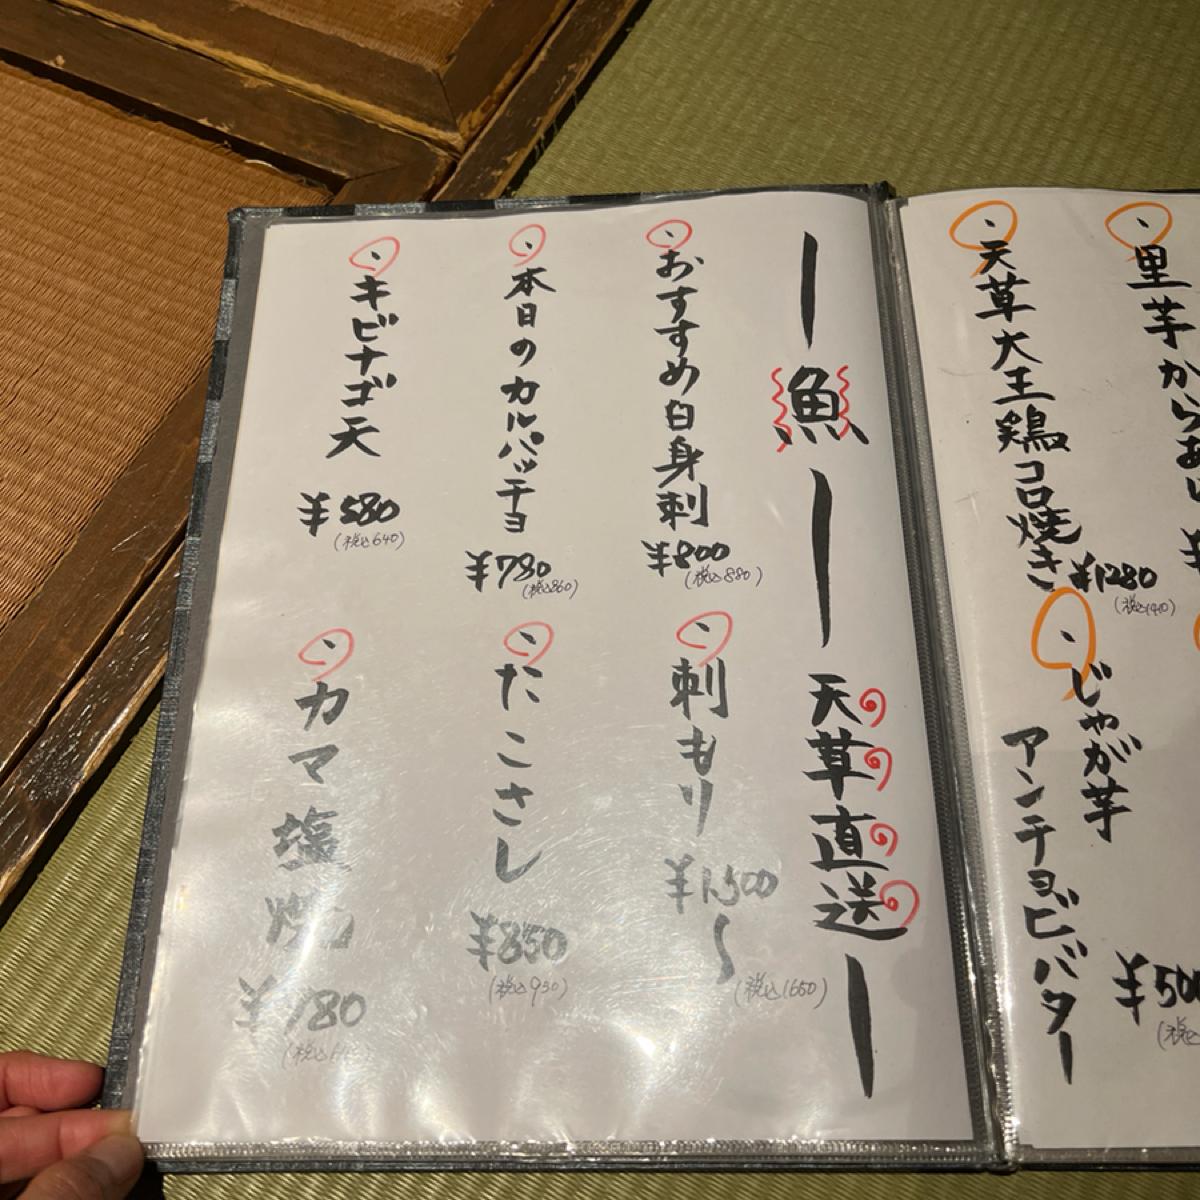 里芋からあげ
¥
天草大王鶏コロ焼き
¥1280
じゃが芋
アンチョビバター
¥500
(税込
魚
天草直送
おすすめ白身刺
¥800
(税込880)
刺もり
¥1,500
〜
(税込1650)
本日のカルパッチョ
¥780
(税込860)
たこさし
¥850
(税込930)
キビナゴ天
¥580
(税込640)
カマ塩焼